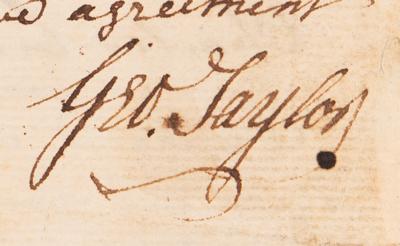 agreement
Geo. Taylor